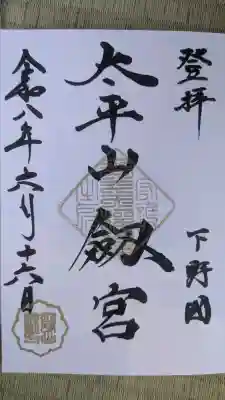 登拝
下野国
太平山劔宮
令和八年六月十六日